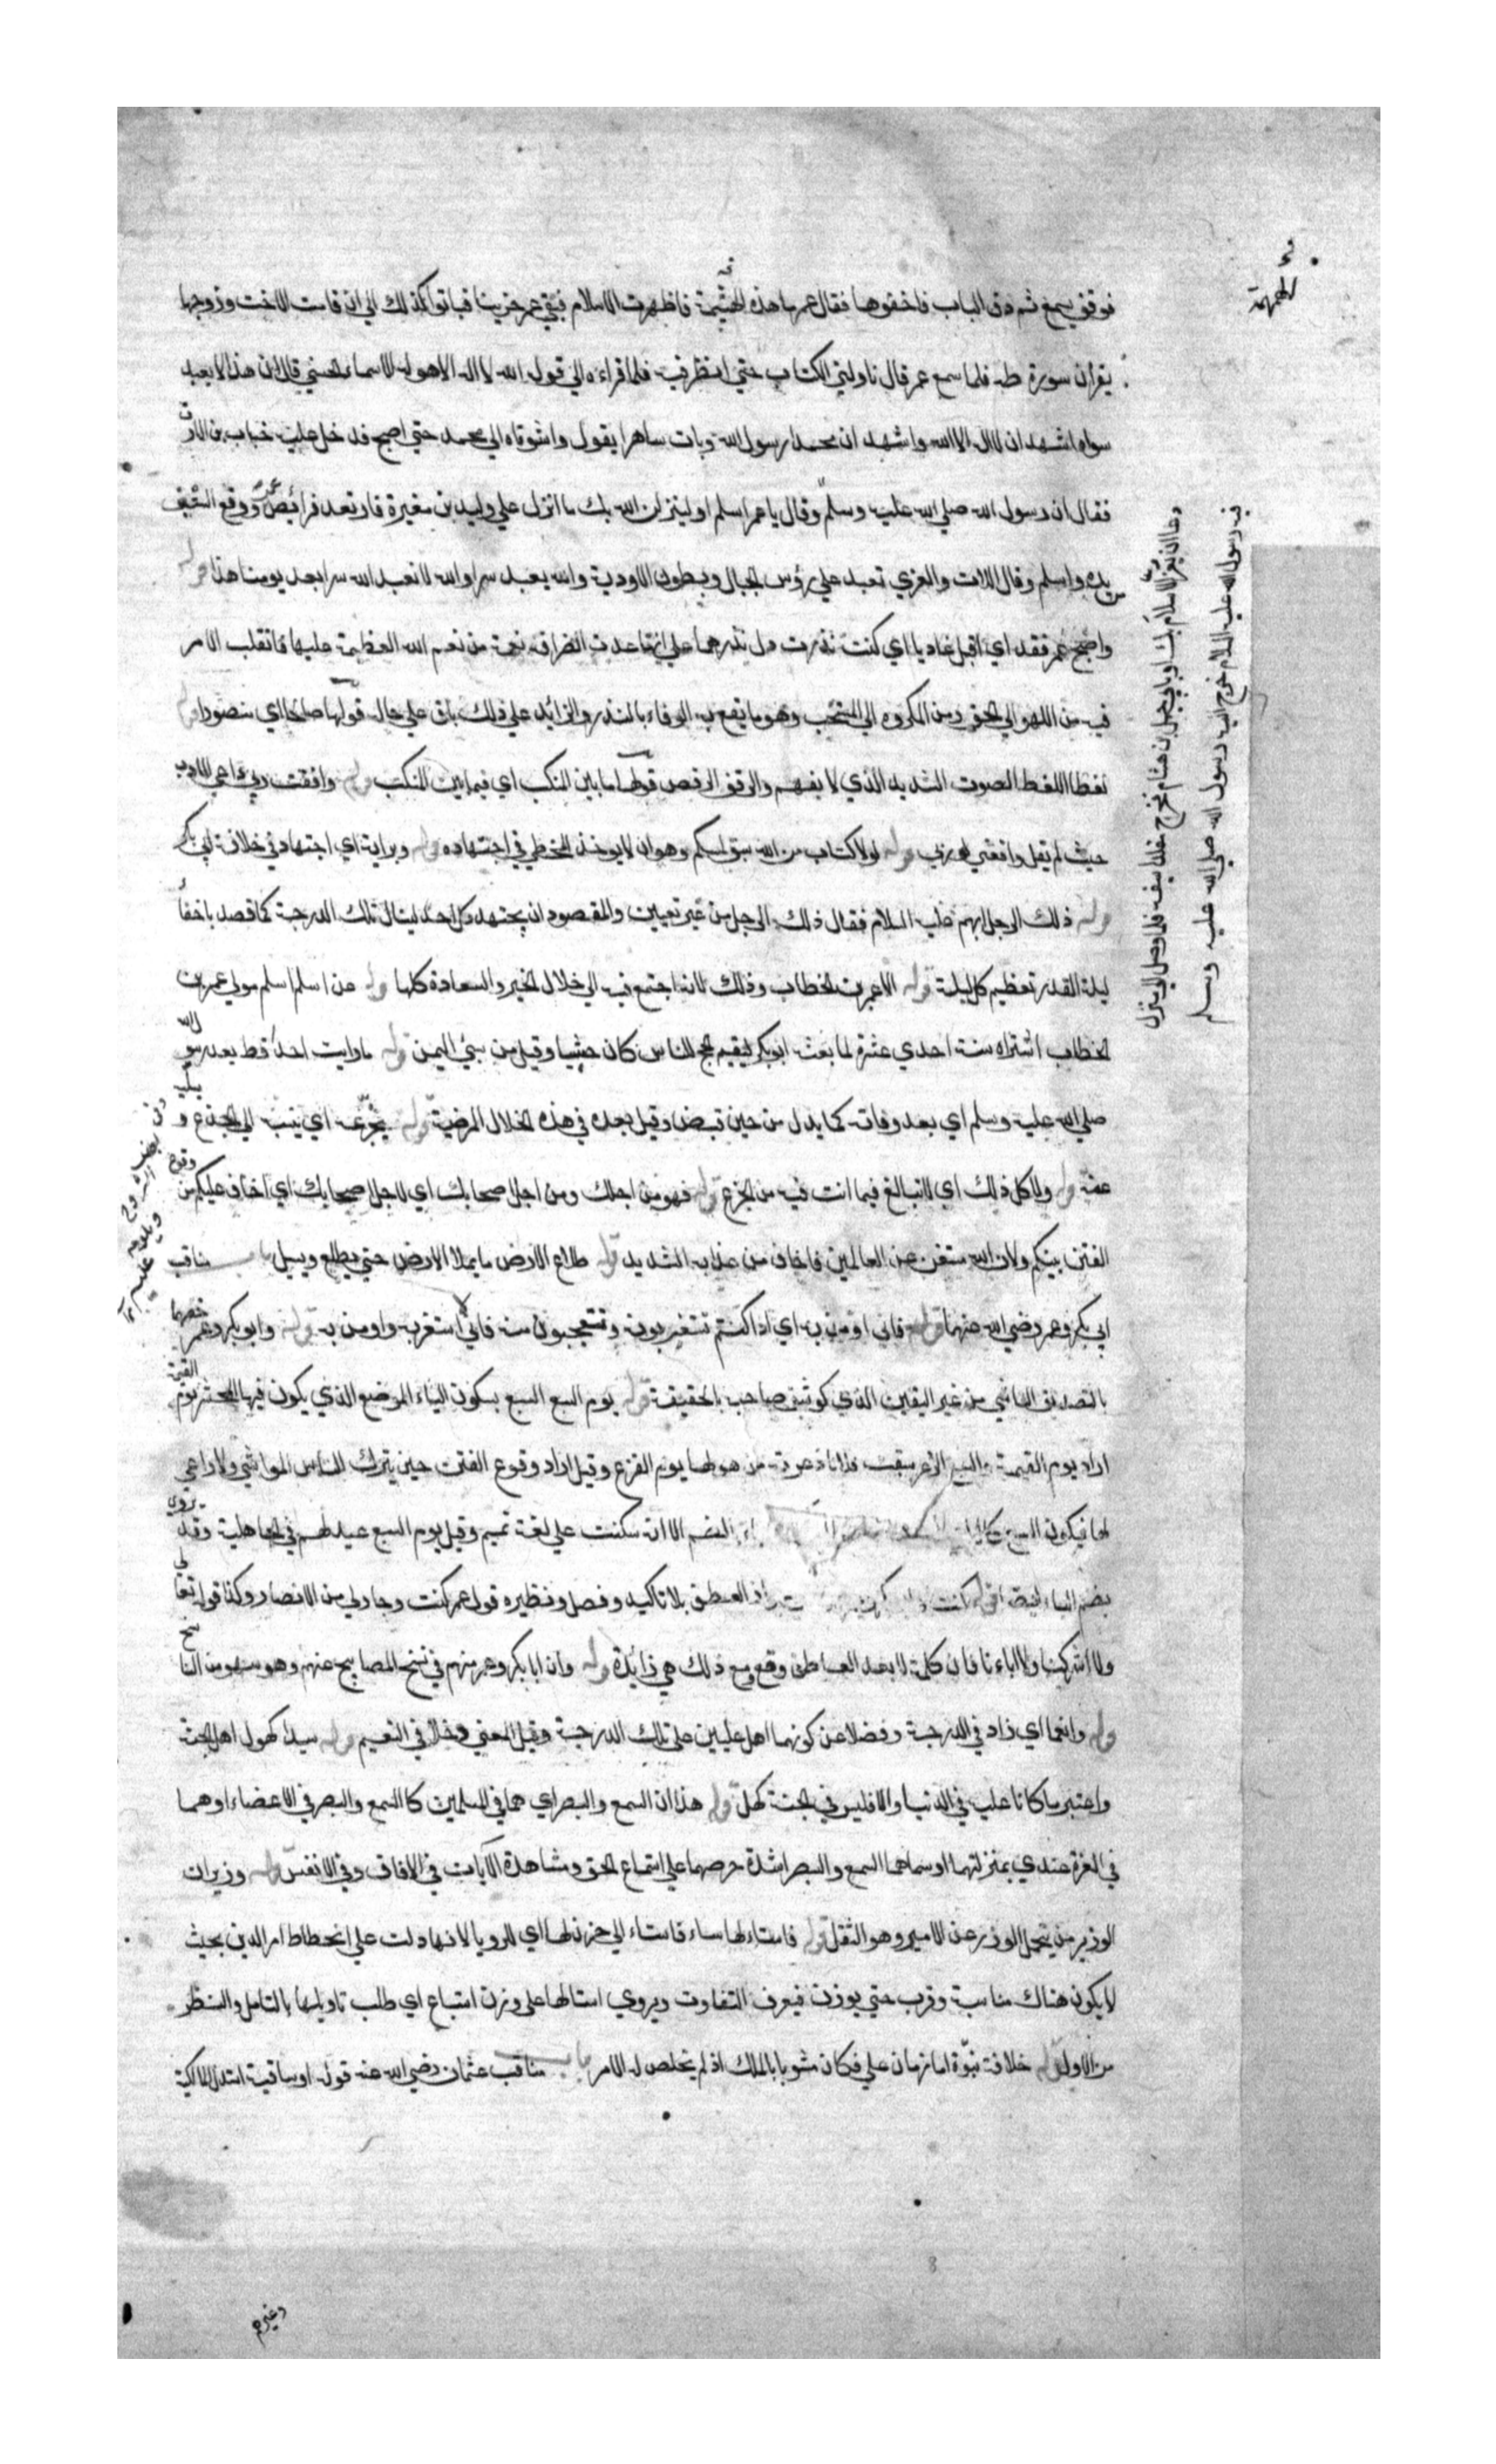 فوقف يسمع ثم دق الباب فاخفوها فقال عمر ما هذه الهيثمة فاظهرت الاسلام فبقي عمر حزينا فباتوا كذلك الي ان قامت الاخت وزوجها
يقرآن سورة طه فلما سمع عمر قال ناوليني الكتاب حتي انظر فيه فلما قراءه الي قوله الله لا اله الا هو له الاسماء الحسني قال ان هذا لا يعبد
سواه اشهد ان لا اله الا الله واشهد ان محمدا رسول الله وبات ساهرا يقول واشوقاه الي محمد حتي اصبح فدخل عليه خباب بن الارت
فقال ان رسول الله صلي الله عليه وسلم وقال يا عمر اسلم او لينزلن الله بك ما انزل علي وليد بن مغيرة فارتعد فرائص عمر ووقع السيف
من يده واسلم وقال اللات والعزي تعبد علي رؤس الجبال وبطون الاودية والله يعبد سرا والله لا نعبد الله سرا بعد يومنا هذا قوله
واصبح عمر فقد اي اقبل غاديا اي كنت نذرت دل نذرها علي انها عدت انصرافه نعمة من نعم الله العظيمة عليها فانقلب الامر
فيه من اللهو الي الحق ومن المكروه الي المستحب وهو ما يقع به الوفاء بالنذر والزائد علي ذلك باق علي حاله قولها صالحا اي منصورا قوله
لغطا اللغط الصوت الشديد الذي لا يفهم والزفن الرقص قولها ما بين المنكب اي فيما بين المنكب قوله وافقت ربي راعي الادب
حيث لم يقل وافقني ربي قوله لولا كتاب من الله سبق لمسكم وهو ان لا يوخذ المخطي في اجتهاده قوله وبراية اي اجتهاد في خلافة ابي بكر
قوله ذلك الرجل ابهم عليه السلام فقال ذلك الرجل من غير تعيين والمقصود ان يجتهد كل احد لينال تلك الدرجة كما قصد باخفاء
ليلة القدر تعظيم كل ليلة قوله الا عمر بن الخطاب وذلك لانه اجتمع فيه الي خلال الخير والسعادة كلها قوله عن اسلم اسلم مولي عمر بن
الخطاب اشتراه سنة احدي عشرة لما بعث ابو بكر ليقيم الحج للناس كان حبشيا وقيل من سبي اليمن قوله ما رايت احدا قط بعد رسول الله
صلي الله عليه وسلم اي بعد وفاته كما يدل من حين قبض وقيل بعده في هذه الخلال المرضية قوله يجزعه اي ينسبه الي الجزع و
عنه قوله ولا كل ذلك اي لا تبالغ فيما انت فيه من الجزع قوله فهو من اجلك ومن اجل صحابك اي لاجل اصحابك اي اخاف عليكم من وقوع
الفتن بينكم ولان الله مستغن عن العالمين فاخاف من عذابه الشديد قوله طلاع الارض ما يملا الارض حتي يطلع ويسيل باب مناقب
ابي بكر وعمر رضي الله عنهما قوله فاني اومن به اي اذا كنتم تستغربونه وتتعجبون منه فاني لا استغربه واومن به قوله وابو بكر وعمر خصهما
بالتصديق الناشي من غير اليقين الذي كوشف صاحبه بالحقيقة قوله يوم السبع السبع بسكون الباء الموضع الذي يكون فيها المحشر يوم القيمة
اراد يوم القيمة والسبع الذعر سبقت فلانا ذعرته من هولها يوم الفزع وقيل اراد وقوع الفتن حين يترك الناس المواشي ولا راعي
لها فيكون السبع الضم الا انه سكنت علي لغة تميم وقيل يوم السبع عيد لهم في الجاهلية وقد يروي
بضم الباء ايضا قوله كنت العطف بلا تاكيد وفصل ونظيره قول عمر كنت وجار لي من الانصار وكذا قوله تعالي
ولا اشركنا ولا اباءنا فان كلمة لا بعد العاطف وقع ومع ذلك هي زائدة قوله وان ابا بكر وعمر منهم في نسخ المصابيح عنهم وهو سهو من الناسخ
قوله وانعما اي زاد في الدرجة وفضلا عن كونهما اهل عليين علي تلك الدرجة وقيل المعني دخلا في النعيم قوله سيدا كهول اهل الجنة
واعتبر ما كانا عليه في الدنيا والا فليس في الجنة كهل قوله هذان السمع والبصر اي هما في المسلمين كالسمع والبصر في الاعضاء او هما
في العزة عندي بمنزلتهما او سماهما السمع والبصر لشدة حرصهما علي استماع الحق ومشاهدة الآيات في الافاق وفي الانفس قوله وزيران
الوزير من يتحمل الوزر عن الامير وهو الثقل قوله فاستاء لها ساء فاستاء الي حزن لها اي للرويا لانها دلت علي انحطاط امر الدين بحيث
لا يكون هناك مناسبة وقرب حتي يوزن فيعرف التفاوت ويروي استالها علي وزن استباع اي طلب تاويلها بالتامل والنظر
من الاول قوله خلافة نبوة اما زمان علي فكان مشوبا بالملك اذ لم يخلص له الامر باب مناقب عثمان رضي الله عنه قوله او ساقيه استدل المالكية
دعا ان يعز الاسلام بك او بابي جهل بن هشام فخرج مقلدا سيفه فلما وصل الي منزل
فيه رسول الله عليه السلام خرج اليه رسول الله صلي الله عليه وسلم
وغيره